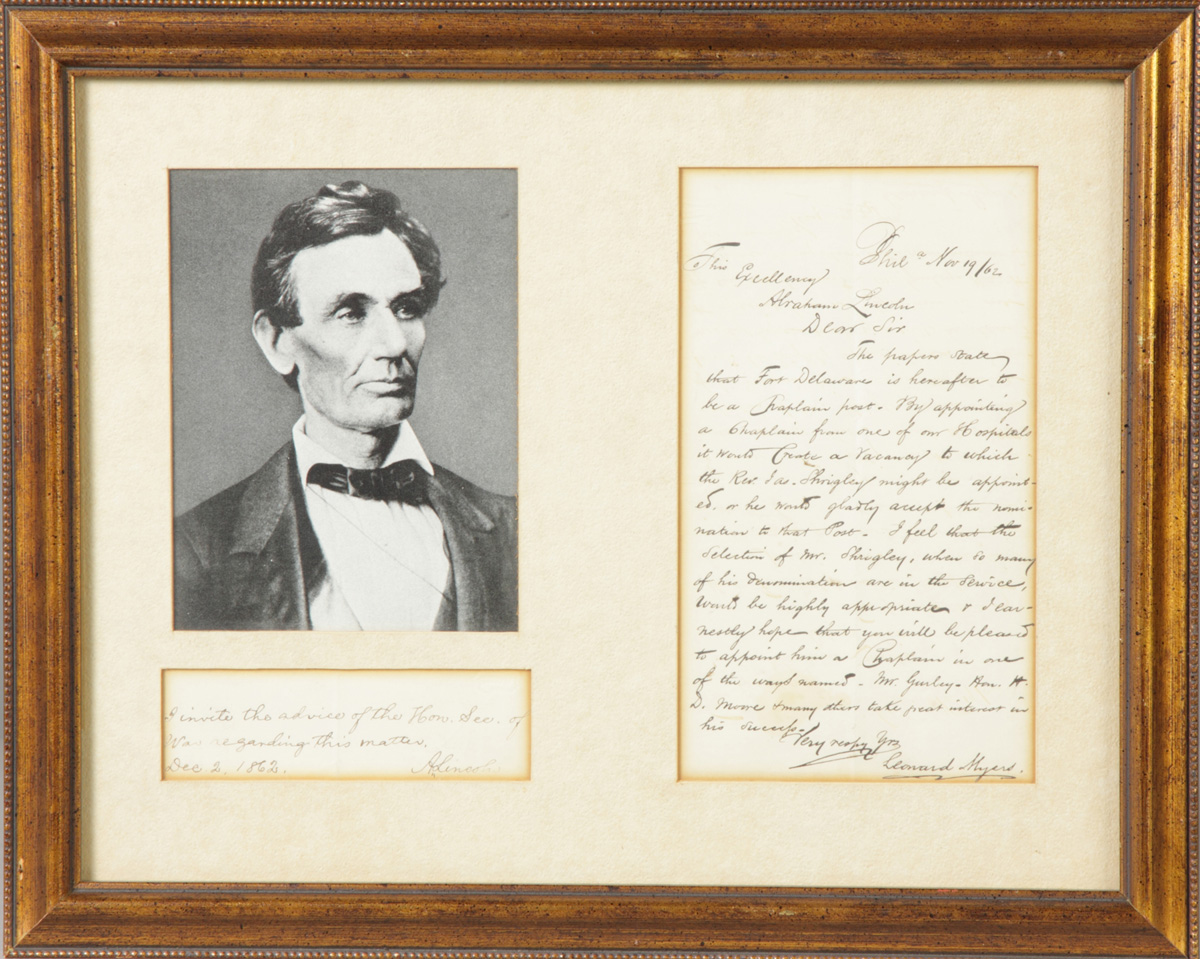 I invite the advice of the Hon. Sec. of
War regarding this matter.
Dec. 2. 1862. A. Lincoln
Phila Nov 19/62
His Excellency
Abraham Lincoln
Dear Sir
The papers state
that Fort Delaware is hereafter to
be a Chaplain post. By appointing
a Chaplain from one of our Hospitals
it would Create a Vacancy to which
the Rev. Jas. Shrigley might be appoint-
ed, or he would gladly accept the nomi-
nation to that Post. I feel that the
Selection of Mr. Shrigley, when so many
of his denomination are in the Service,
Would be highly appropriate & I ear-
nestly hope that you will be pleased
to appoint him a Chaplain in one
of the ways named - Mr Gurley - Hon. H.
D. Moore & many others take great interest in
his success.
Very respy Yrs
Leonard Myers.